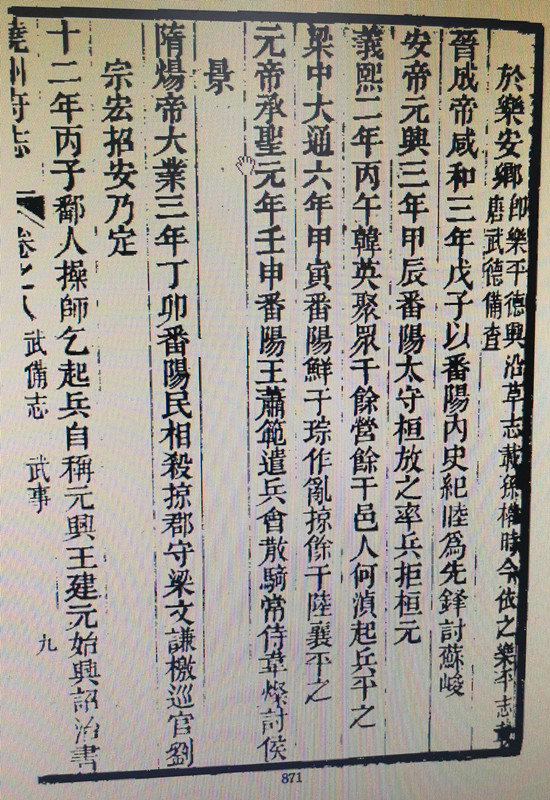 於樂安鄉卽樂平德興沿革志載孫權時今依之樂平志載
唐武德備查
晉成帝咸和三年戊子以番陽內史紀睦爲先鋒討蘇峻
安帝元興三年甲辰番陽太守桓放之率兵拒桓元
義熙二年丙午韓英聚眾千餘營餘干邑人何湞起兵平之
梁中大通六年甲寅番陽鮮于琮作亂掠餘干陸襄平之
元帝承聖元年壬申番陽王蕭範遣兵會散騎常侍韋燦討侯
景
隋煬帝大業三年丁卯番陽民相殺掠郡守梁文謙檄巡官劉
宗宏招安乃定
十二年丙子鄱人操師乞起兵自稱元興王建元始興詔治書
饒州府志
卷之八 武備志 武事
九
871